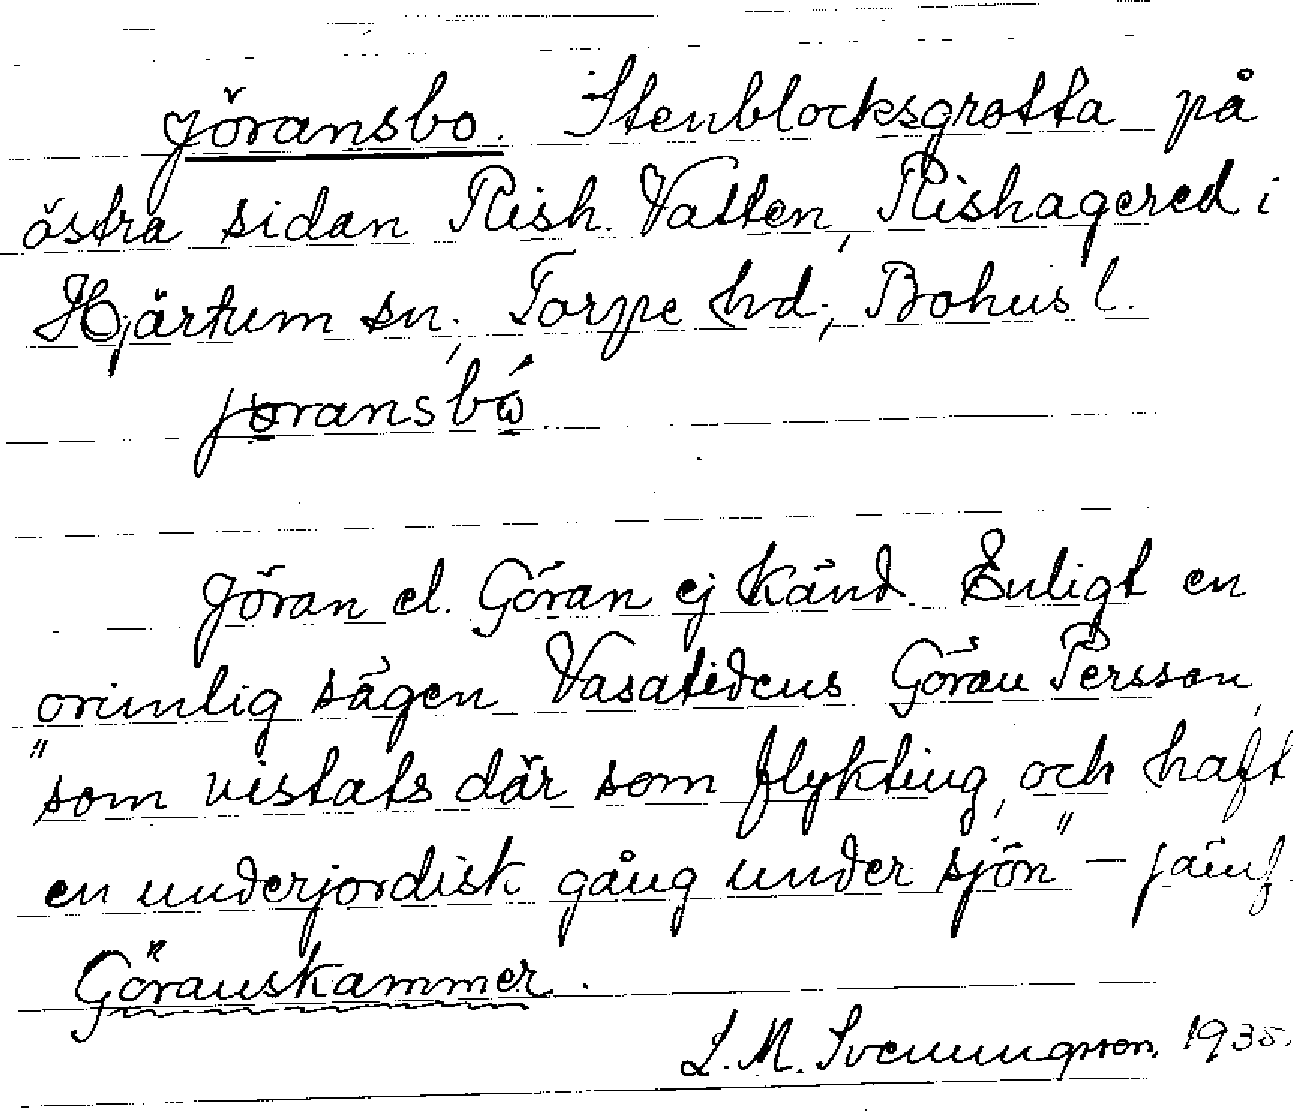 Jöransbo. Stenblocksgrotta på
östra sidan Rish. Vatten, Rishagered i
Hjärtum sn., Torpe hd., Bohusl.
Jöran el. Göran ej känd. Enligt en
orimlig sägen Vasatidens Göran Persson,
"som vistats där som flykting, och haft
en underjordisk gång under sjön" – jämf.
Göranskammer.
L. M. Svenungsson, 1935.